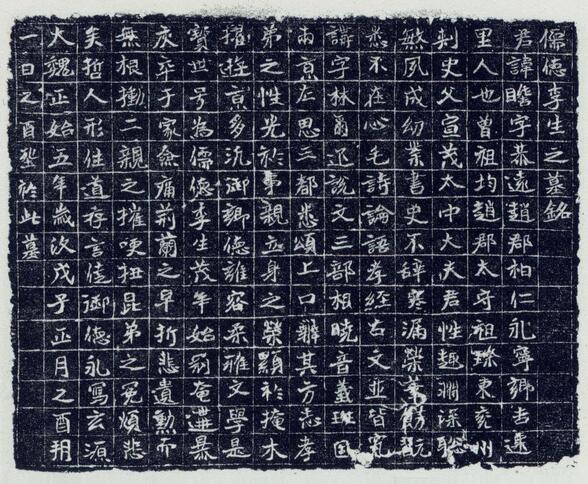 儒德李生之墓銘
君諱瞻字恭遠趙郡柏仁永寧鄉吉遷
里人也曾祖均趙郡太守祖璨東兗州
刺史父宣茂太中大夫君性趣淵深聰
慜夙成幼業書史不辭寒漏榮翫
悉不在心毛詩論語孝經古文並皆究
講字林爾迊說文三部相曉音義班固
兩京左思三都悉頌上口辯其方志孝
弟之性光於事親立身之榮顯於掩木
擢遊京多汎御卿德雖容柔雅文學是
贊世号為儒德李生茂年始弱奄遘暴
疾卒于家僉痛荊蘭之早折悲遺勳而
無根慟二親之摧哽扭昆弟之冤煩悲
矣哲人形往道存言佳御德永寫玄源
大魏正始五年歲次戊子正月乙酉朔
一日乙酉葬於此墓